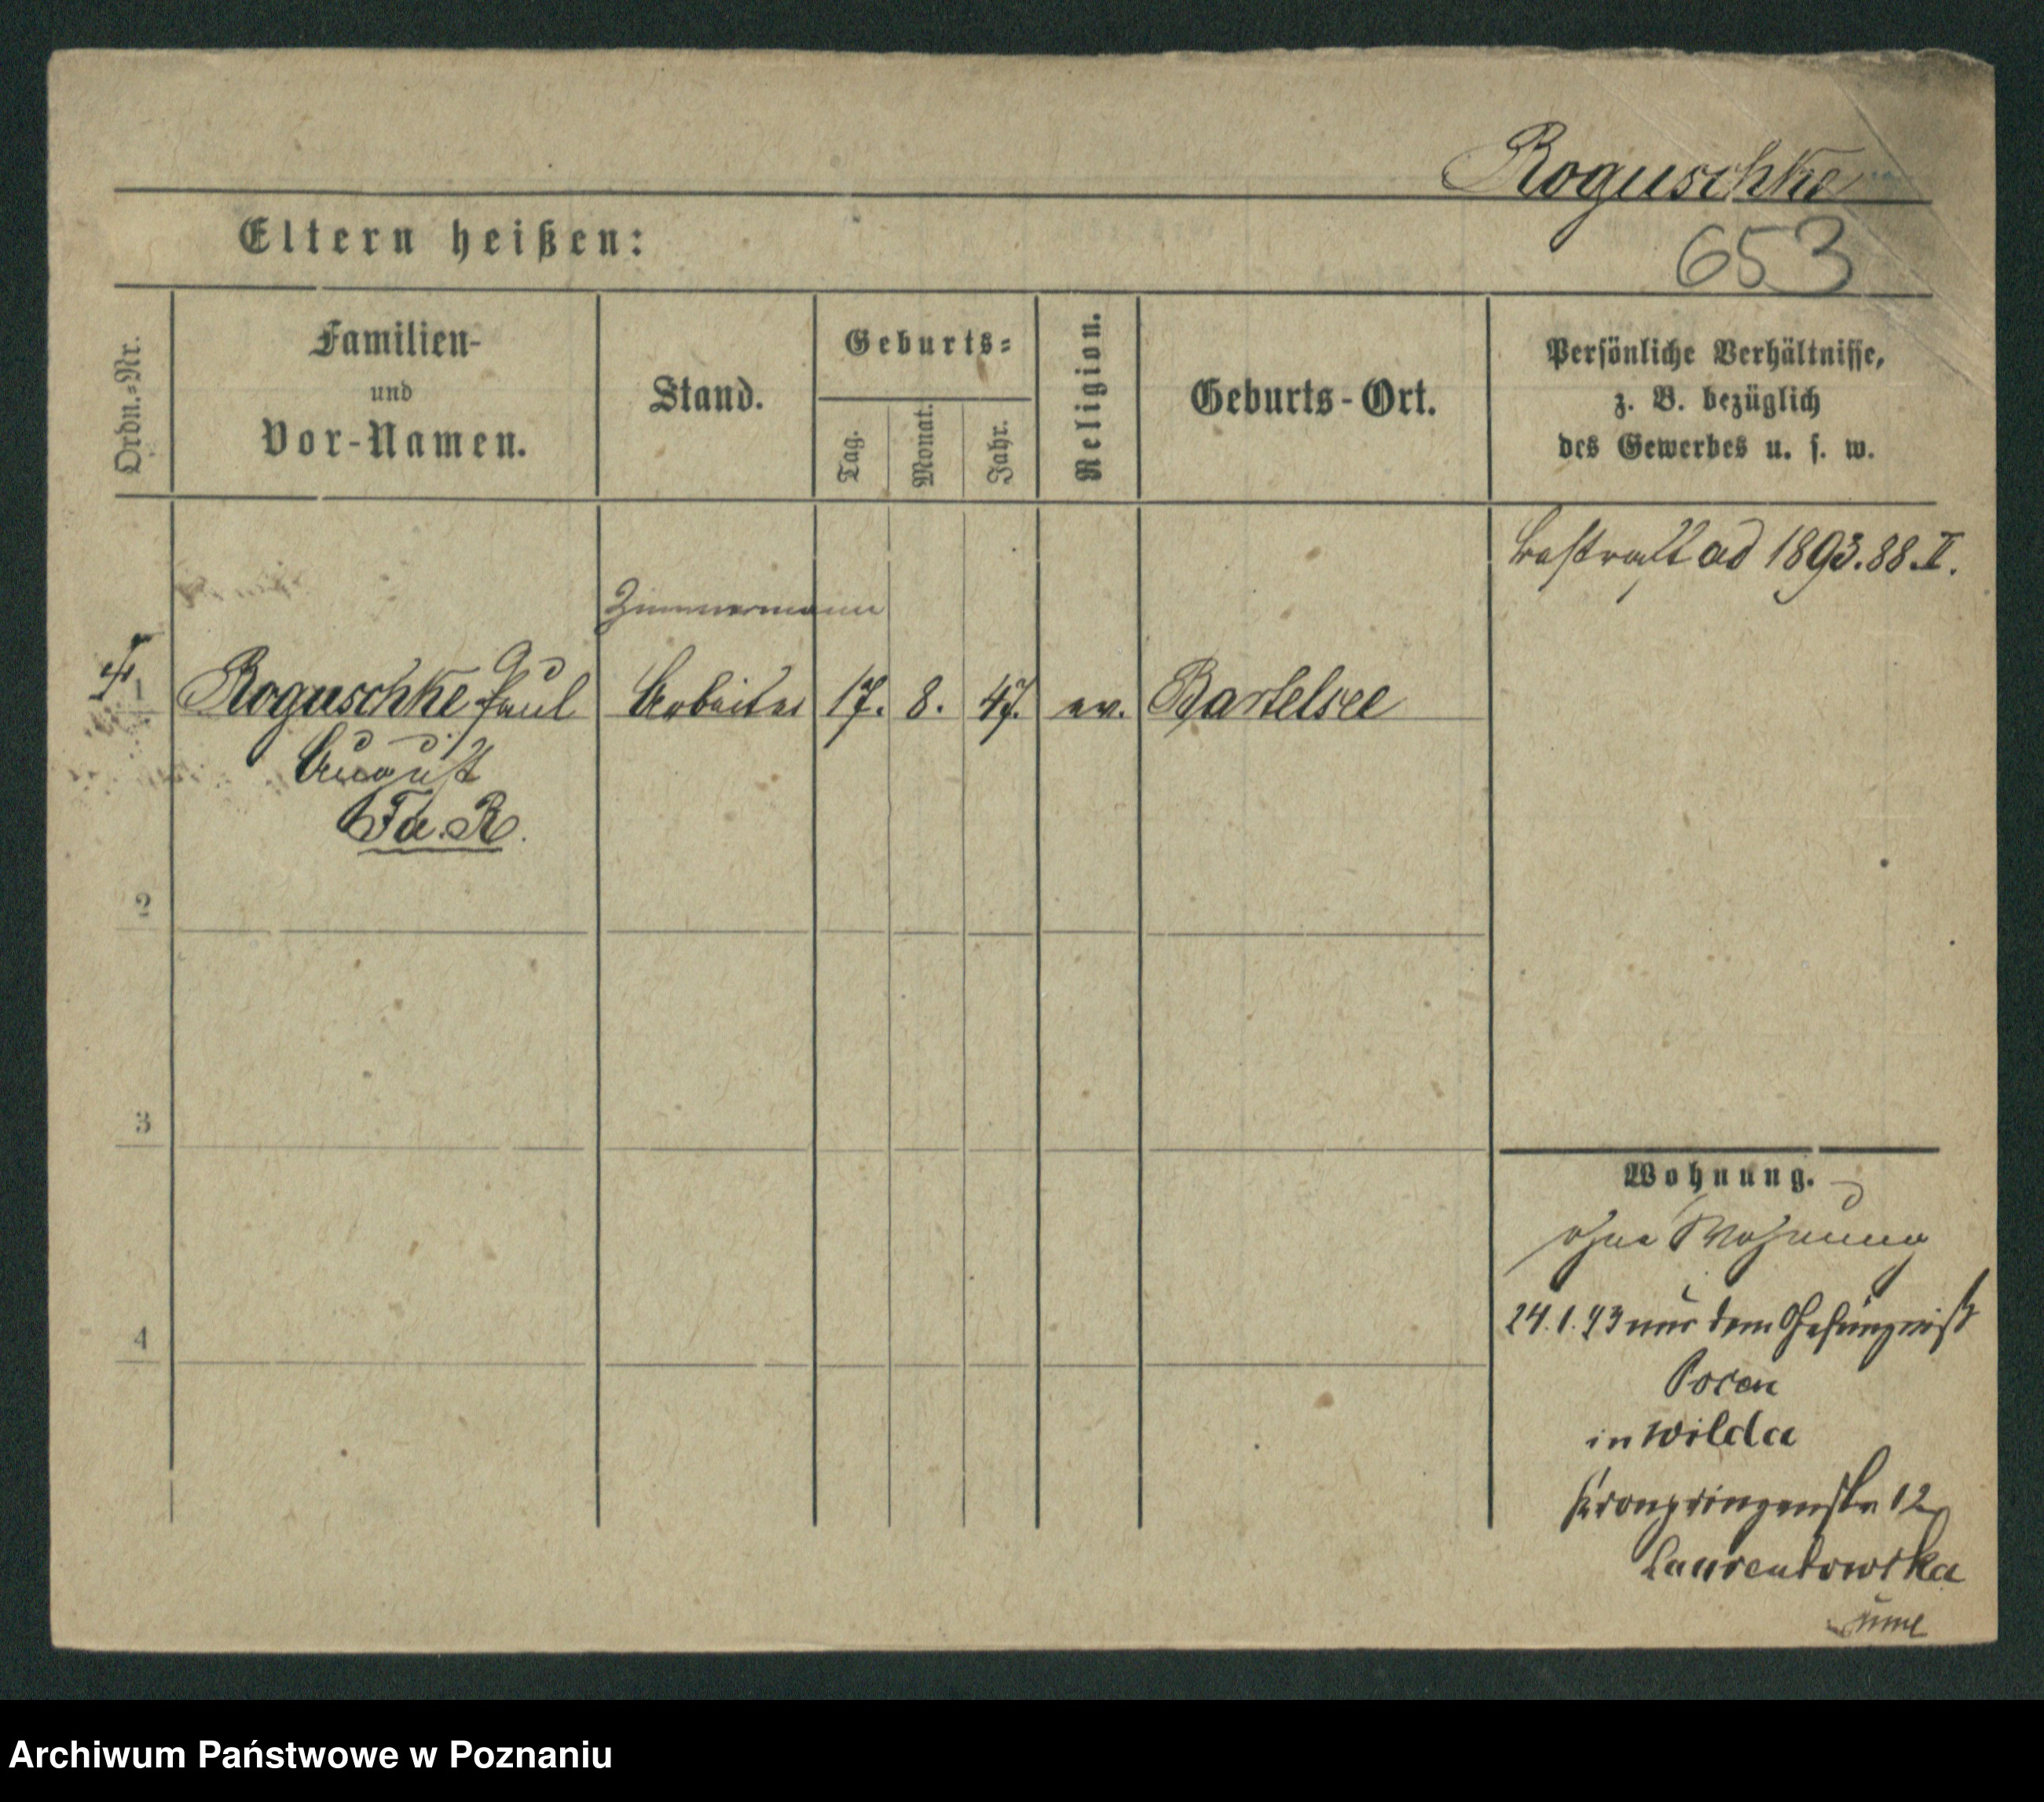 Roguschke
653
Eltern heißen:
Ordn.-Nr.
Familien-
und
Vor-Namen.
Stand.
Geburts-
Tag.
Monat.
Jahr.
Religion.
Geburts-Ort.
Persönliche Verhältnisse,
z. B. bezüglich
des Gewerbes u. s. w.
bestraft ad 1893.88.II.
Zimmermann
1 Roguschke Paul Arbeiter 17. 8. 47. ev. Bartelsee
August
2
3
4
Wohnung.
ohne Wohnung
24.1.93 aus dem Gefängniß
Posen
in Wilda
Kronprinzenstr 12
Archiwum Państwowe w Poznaniu